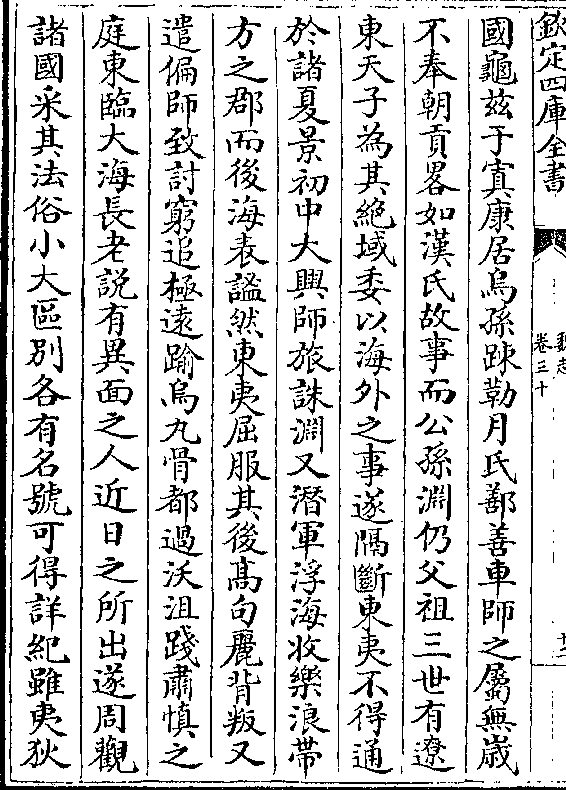 欽定四庫全書
魏志
卷三十
國龜玆于寘康居烏孫踈勒月氏鄯善車師之屬無歲
不奉朝貢畧如漢氏故事而公孫淵仍父祖三世有遼
東天子為其絶域委以海外之事遂隔斷東夷不得通
於諸夏景初中大興師旅誅淵又潛軍浮海收樂浪帶
方之郡而後海表謐然東夷屈服其後髙句麗背叛又
遣偏師致討窮追極遠踰烏丸骨都過沃沮踐肅慎之
庭東臨大海長老説有異面之人近日之所出遂周觀
諸國采其法俗小大區別各有名號可得詳紀雖夷狄